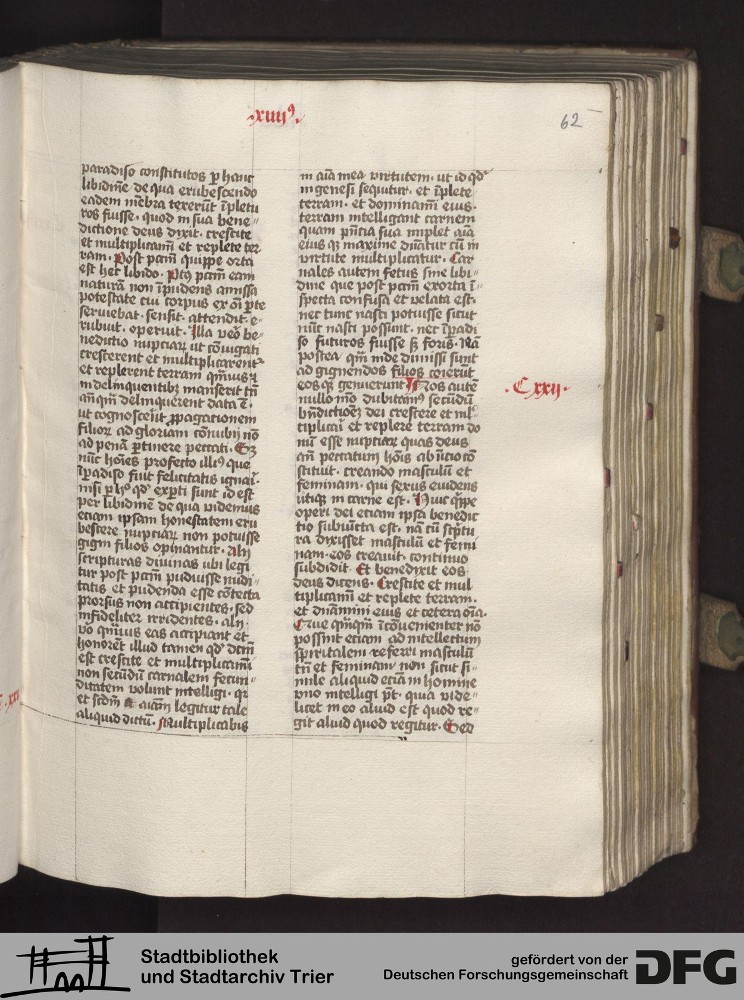 ·xiiij⁹·
62
paradiso constitutos ꝑ hanc
libidinē de qua erubescendo
eadem mēbra texerūt īpletu
ros fuisse · quod in sua bene
dictione deus dixit · crescite
et multiplicamī et replete ter
ram · Post pctm̄ quippe orta
est hec libido · Ptꝰ pctm̄ eam
naturā non īpudens amissa
potestate cui corpus ex oī ꝑte
seruiebat · sensit · attendit · e
rubuit · operuit · Illa ꝟo be
nedictio nuptiaꝝ ut cōiugati
crescerent et multiplicarent᷑
et replerent terram qm̄uis ī
in delinquentibꝫ manserit tn̄
anq̄m delinquerent data ē ·
ut cognosceret᷑ ꝓpagationem
filioꝝ ad gloriam cōnubij nō
ad penā ꝑtinere peccati · Sꝫ
nūc hoīes profecto illiꝰ que
īparadiso fuit felicitatis ignari ·
nisi ꝑ hͦ qd̓ exꝑti sunt id est
per libidinē de qua videmus
etiam ipsam honestatem eru
bescere nuptiaꝝ non potuisse
gigni filios opinantur · Alij
scripturas diuinas ubi legi
tur post pctm̄ puduisse nudi
tatis et pudenda esse cōtecta
prorsus non accipientes · sed
infideliter irridentes · alij
ꝟo qm̄uis eas accipiant et
honorēt illud tamen qd̓ dictū
est crescite et multiplicamī
non secūdū carnalem fecun
ditatem volunt intelligi · qꝛ
et scdm̄ aīam legitur tale
aliquid dictū · Multiplicabis
in aīa mea virtutem · ut id qd̓
in genesi sequitur · et īplete
terram · et dominamī eius ·
terram intelligant carnem
quam pn̄tia sua implet aīa
eiusqꝫ maxime dn̄atur cū in
virtute multiplicatur · Car
nales autem fetus sine libi
dine que post pctm̄ exorta ī
specta confusa et velata est ·
nec tunc nasci potuisse sicut
nūc nasci possunt · nec īparadi
so futuros fuisse sꝫ foris · Nā
postea qm̄ inde dimissi sunt
ad gignendos filios coierūt
eosqꝫ genuerunt Nos autē
·Cxxij·
nullo mō dubitamꝰ secūdū
bn̄dictioēꝫ dei crescere et ml̓
tiplicari et replere terram do
nū esse nuptiaꝝ quas deus
an̄ peccatum hoīs ab inicio cō
stituit · creando masculū et
feminam · qui sexus euidens
utiqꝫ in carne est · Huic qͥppe
operi dei etiam ipsa benedic
tio subiuncta est · nā cū sc̄ptu
ra dixisset masculū et femi
nam · eos creauit · continuo
subdidit · Et benedixit eos
deus dicens · Crescite et mul
tiplicamī et replete terram ·
et dn̄amini eius et cetera oīa ·
Que quāquam īcōuenienter nō
possint etiam ad intellectum
spiritalem referri masculū
tn̄ et feminam non sicut si
mile aliquid etiā in homine
vno intelligi pt̄ · quia vide
licet in eo aliud est quod re
git aliud quod regitur · Sed
Stadtbibliothek
und Stadtarchiv Trier
gefördert von der
Deutschen Forschungsgemeinschaft
DFG